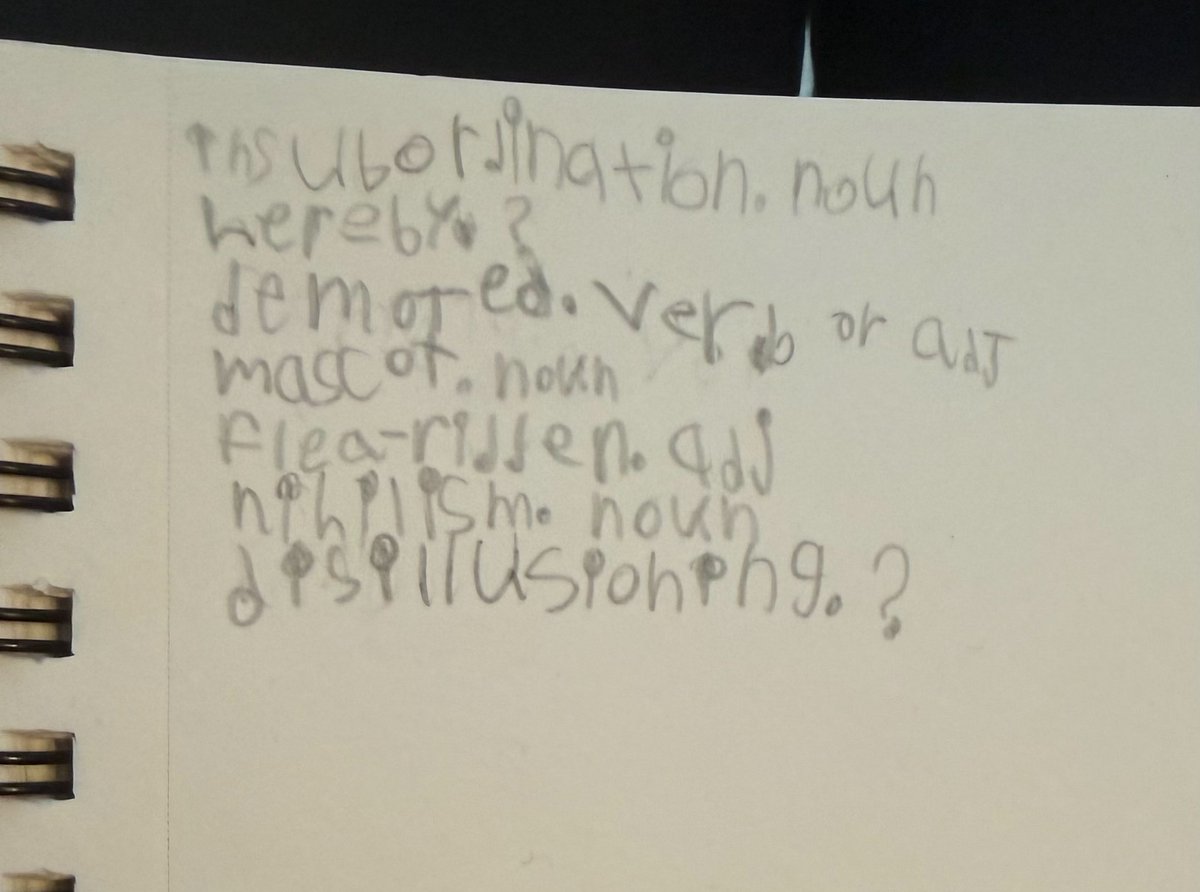 insubordination. noun
hereby. ?
demoted. verb or adj
mascot. noun
flea-ridden. adj
nihilism. noun
disillusioning. ?